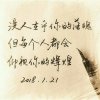 没人在乎你的落魄
但每个人都会
仰视你的辉煌
2018.1.21